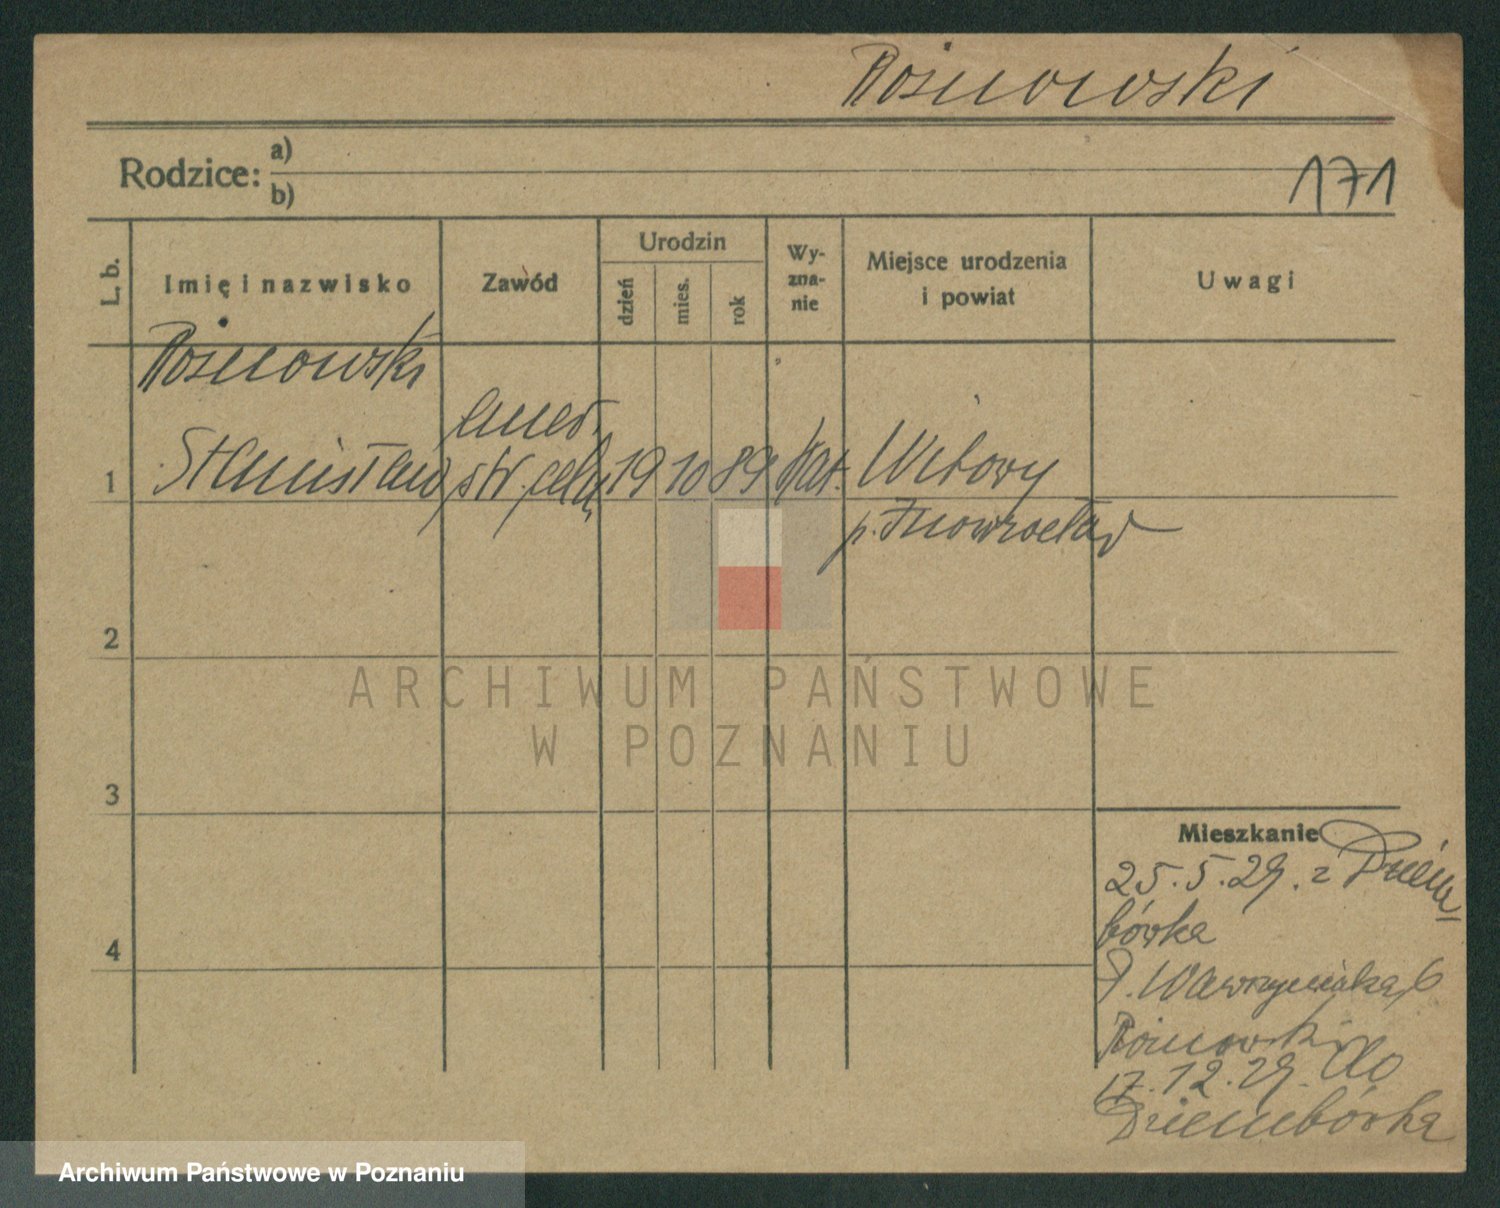 Rożnowski
Rodzice: a)
b)
171
L. b.
Imię i nazwisko
Zawód
Urodzin
dzień
mies.
rok
Wy-
zna-
nie
Miejsce urodzenia
i powiat
Uwagi
Rożnowski
1 Stanisław
emer.
str. celn
19 10 89 kat. Witowy
p. Inowrocław
2
3
4
Mieszkanie
25.5.29. z Dziem-
bówka
Wawrzyniaka 6
Rożnowski
17.12.29. do
Dziembówka
ARCHIWUM PAŃSTWOWE
W POZNANIU
Archiwum Państwowe w Poznaniu